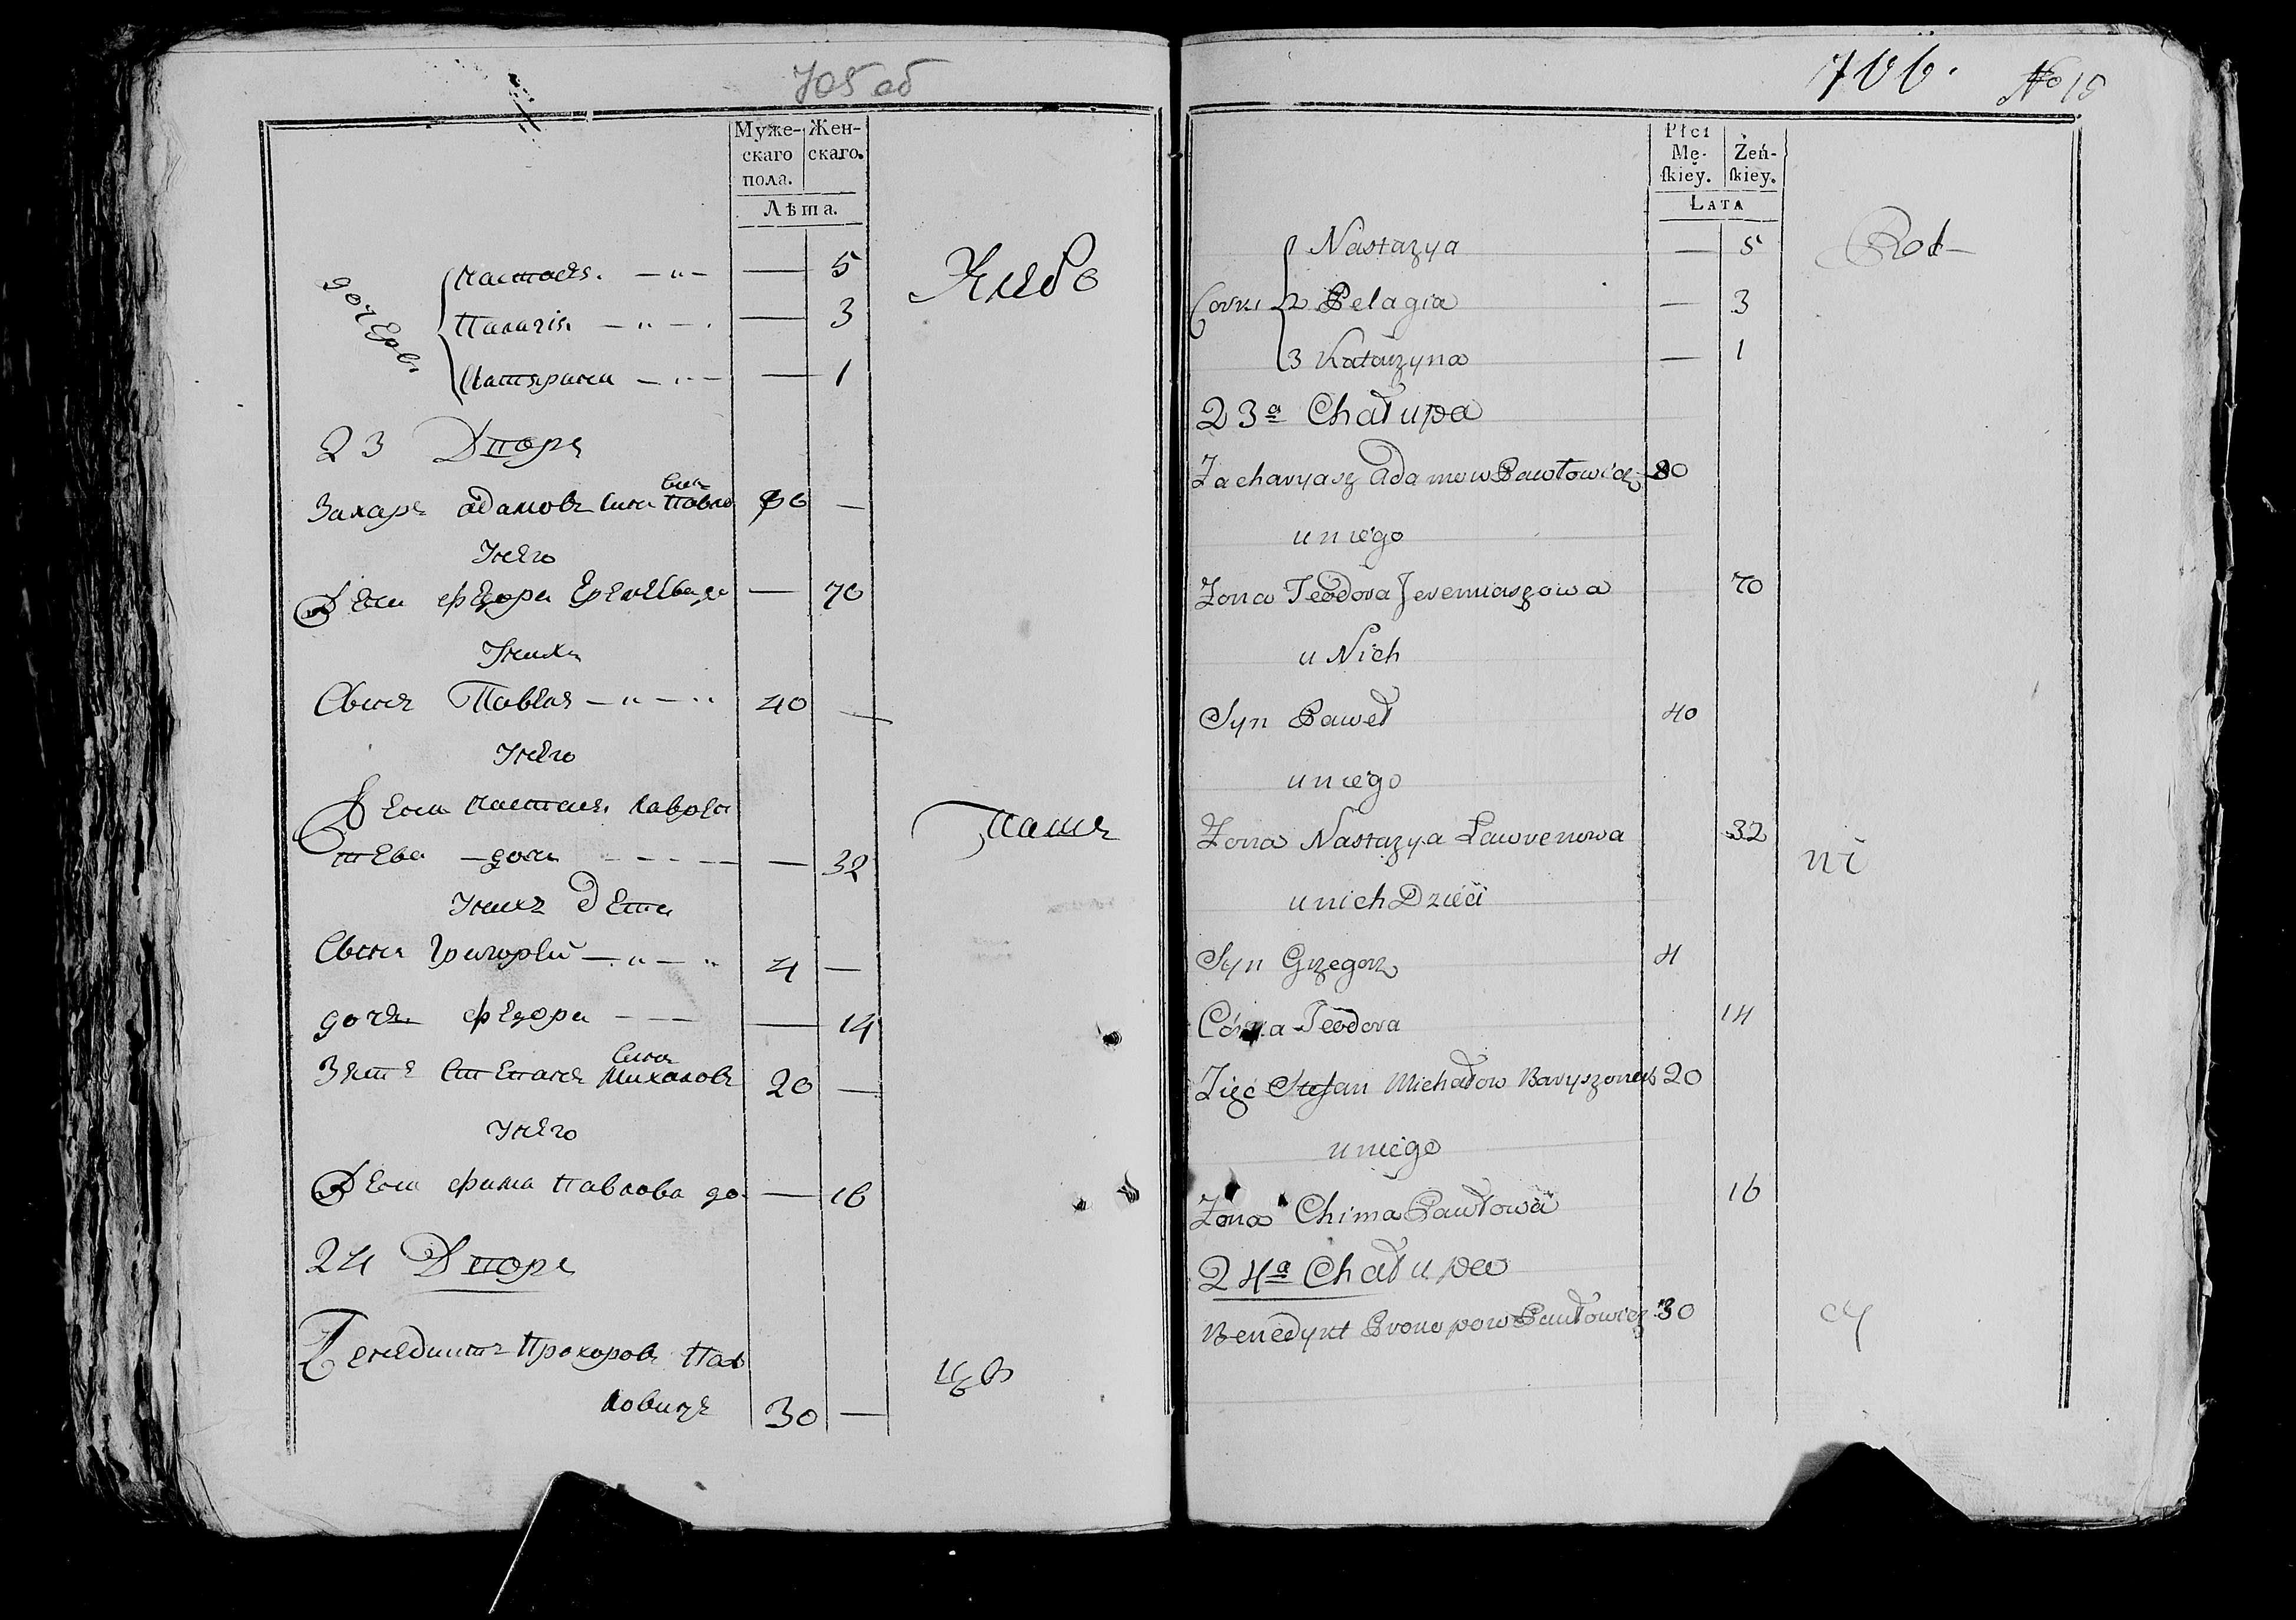 705 об
Муже- Жен-
скаго скаго.
пола.
Лѣта.
дочЕри
Настася. — 5
Палагія — 3
Катярина — 1
Хлѣбо
23 Дворъ
Захаръ Адамовъ сынъ Павло —
Унѣго
Жена Фѣдора — 70
Унихъ
Сынъ Павелъ 40 —
Унѣго
Жена Настася Лавре
дочь — 32
Паш
Унихъ дѣти
Сынъ Григорѣй 4 —
дочь Фѣдора — 14
Зять Стѣпанъ Михаловъ сынъ 20 —
Унѣго
Жена Фима Павлова до — 16
24 Дворъ
Бенедиктъ Прохоровъ Пав
ловичъ 30 —
цѣ
706. No 15
Płci
Mę- Żeń-
skiey. skiey.
LATA
Nastazya — 5
Corki 2 Pelagia — 3
3 Katarzyna — 1
Rol-
23a Chałupa
Zacharyasz Adamow Pawłowicz 80
u niego
Zona Teodora Jeremiaszowa 70
u Nich
Syn Paweł 40
u niego
Zona Nastazya Lawrenowa 32
ni
u nich Dzieci
Syn Grzegorz 4
Córka Teodora 14
Zięć Stefan Michałow 20
u niego
Zona Chima Pawłowa 16
24a Chałupa
Benedykt Prokopow Pawłowicz 30
cy